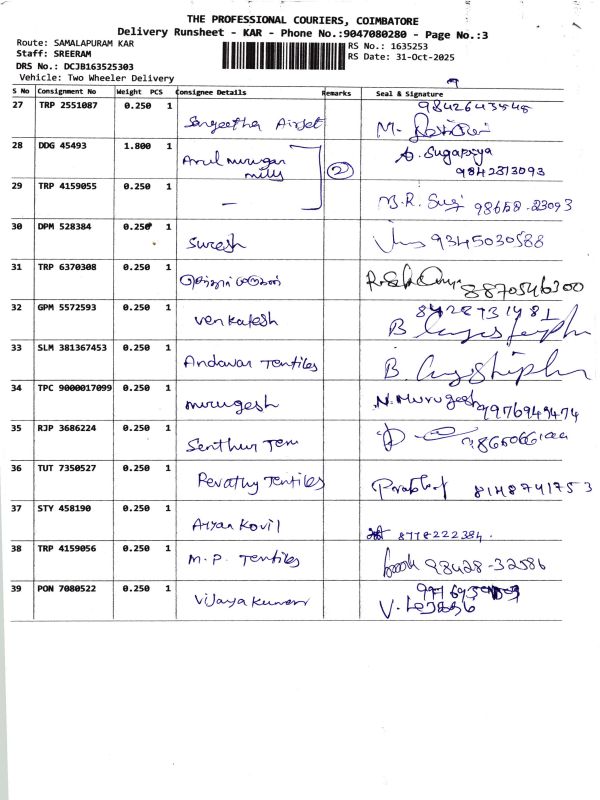 THE PROFESSIONAL COURIERS, COIMBATORE
Delivery Runsheet - KAR - Phone No.:9047080280 - Page No.:3
Route: SAMALAPURAM KAR
RS No.: 1635253
Staff: SREERAM
RS Date: 31-Oct-2025
DRS No.: DCJB163525303
Vehicle: Two Wheeler Delivery
S No Consignment No Weight PCS Consignee Details Remarks Seal & Signature
27 TRP 2551087 0.250 1 Sangeetha Airtel 9842643545 M.
28 DDG 45493 1.800 1 Arul murugan mills 2 A. Sugapriya 9842813093
29 TRP 4159055 0.250 1 — M.R. 98658-23093
30 DPM 528384 0.250 1 Suresh 9345030588
31 TRP 6370308 0.250 1 8870546300
32 GPM 5572593 0.250 1 Venkatesh 8428731481 B
33 SLM 381367453 0.250 1 Andavar Textiles B.
34 TPC 9000017099 0.250 1 murugesh N. Murugesh 9976949474
35 RJP 3686224 0.250 1 Senthur Tex
36 TUT 7350527 0.250 1 Revathy Textiles 8148741753
37 STY 458190 0.250 1 Aiyan Kovil 8778222384.
38 TRP 4159056 0.250 1 M.P. Textiles 98428-32586
39 PON 7080522 0.250 1 Vijaya Kumar V.